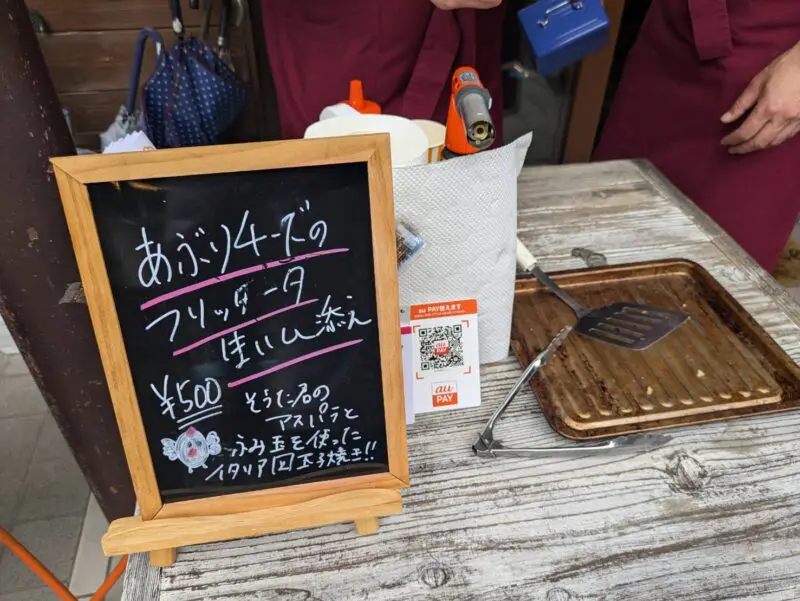 あぶりチーズの
フリッタータ
生ハム添え
¥500
そうた君の
アスパラと
ふみ玉を使った
イタリア図玉子焼き!!
au PAY使えます
au
PAY
au
PAY